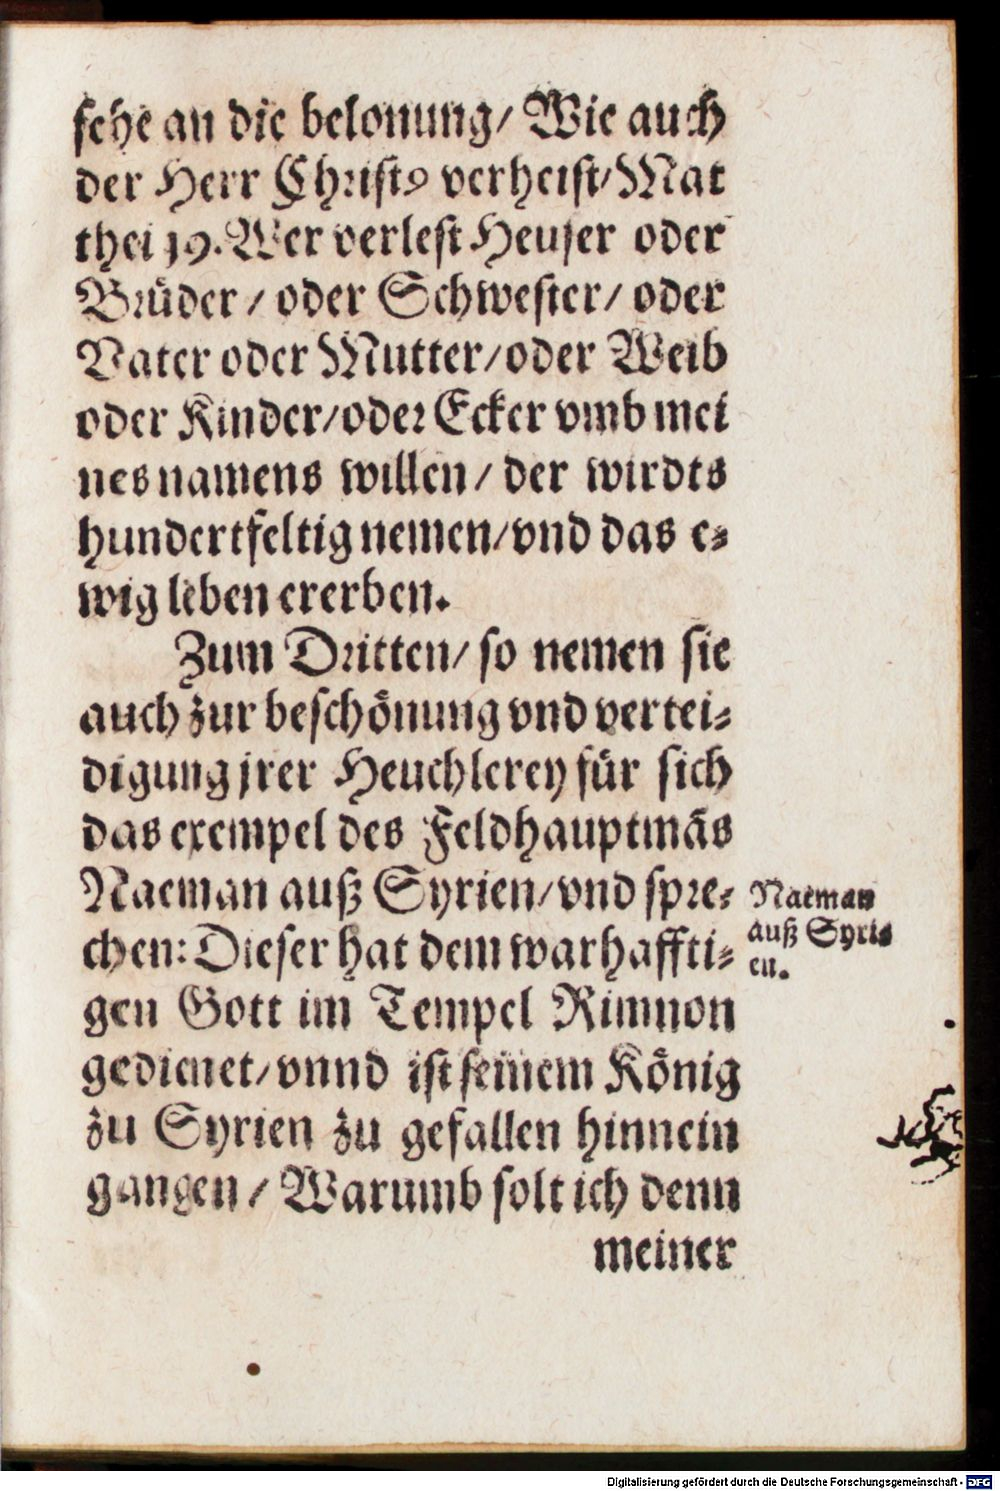 sehe an die belonung/ Wie auch
der Herr Christꝰ verheist/ Mat
thei 19. Wer verlest Heuser oder
Brüder / oder Schwester/ oder
Vater oder Mutter/ oder Weib
oder Kinder/ oder Ecker vmb mei
nes namens willen/ der wirdts
hundertfeltig nemen/ vnd das e⸗
wig leben ererben.
Zum Dritten/ so nemen sie
auch zur beschönung vnd vertei⸗
digung jrer Heuchlerey für sich
das exempel des Feldhauptmās
Naeman auß Syrien/ vnd spre⸗
chen: Dieser hat dem warhaffti⸗
gen Gott im Tempel Rimmon
gedienet/ vnnd ist seinem König
zu Syrien zu gefallen hinnein
gangen / Warumb solt ich denn
meiner
Naeman
auß Syri⸗
en.
Digitalisierung gefördert durch die Deutsche Forschungsgemeinschaft - DFG